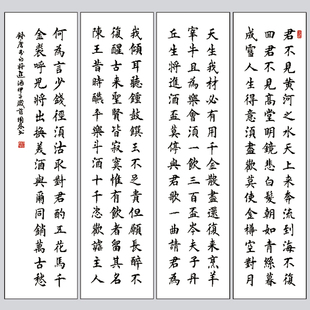 君不見黃河之水天上來奔流到海不復
回君不見高堂明鏡悲白髮朝如青絲暮
成雪人生得意須盡歡莫使金樽空對月
天生我材必有用千金散盡還復來烹羊
宰牛且為樂會須一飲三百盃岑夫子丹
丘生將進酒盃莫停與君歌一曲請君為
我傾耳聽鐘鼓饌玉不足貴但願長醉不
復醒古來聖賢皆寂寞惟有飲者留其名
陳王昔時宴平樂斗酒十千恣歡謔主人
何為言少錢徑須沽取對君酌五花馬千
金裘呼兒將出換美酒與爾同銷萬古愁
李白將進酒